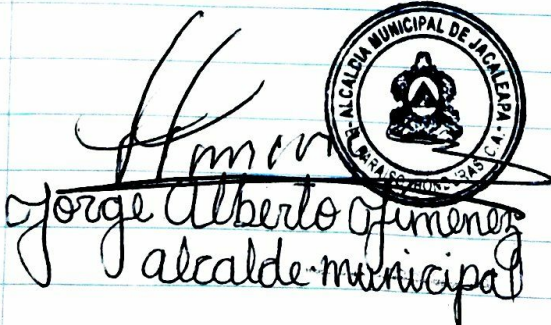 ALCALDIA MUNICIPAL DE JACALEAPA
EL PARAISO, HONDURAS C.A.
Jorge Alberto Jimenez
alcalde municipal